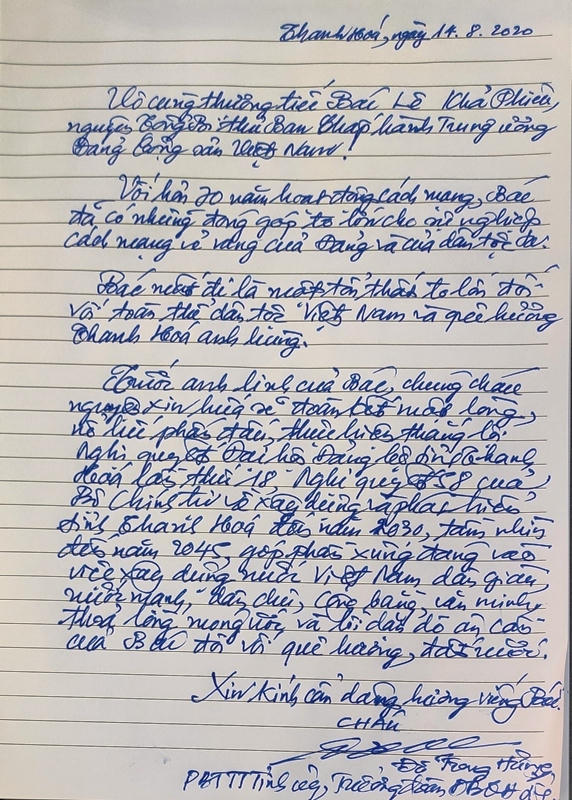 Thanh Hoá, ngày 14.8.2020
Vô cùng thương tiếc Bác Lê Khả Phiêu,
nguyên Tổng Bí thư Ban Chấp hành Trung ương
Đảng Cộng sản Việt Nam!
Với hơn 70 năm hoạt động cách mạng, Bác
đã có những đóng góp to lớn cho sự nghiệp
cách mạng vẻ vang của Đảng và của dân tộc ta.
Bác mất đi là một tổn thất to lớn đối
với toàn thể dân tộc Việt Nam và quê hương
Thanh Hoá anh hùng.
Trước anh linh của Bác, chúng cháu
nguyện xin hứa sẽ đoàn kết một lòng,
nỗ lực phấn đấu, thực hiện thắng lợi
Nghị quyết Đại hội Đảng bộ tỉnh Thanh
Hoá lần thứ 18, Nghị quyết 58 của
Bộ Chính trị về xây dựng và phát triển
tỉnh Thanh Hoá đến năm 2030, tầm nhìn
đến năm 2045, góp phần xứng đáng vào
việc xây dựng nước Việt Nam dân giàu,
nước mạnh, dân chủ, công bằng, văn minh,
thoả lòng mong ước và lời dặn dò ân cần
của Bác đối với quê hương, đất nước.
Xin kính cẩn dâng hương viếng Bác.
CHÁU
Đỗ Trọng Hưng,
PBTTT Tỉnh uỷ, Trưởng đoàn ĐBQH tỉnh